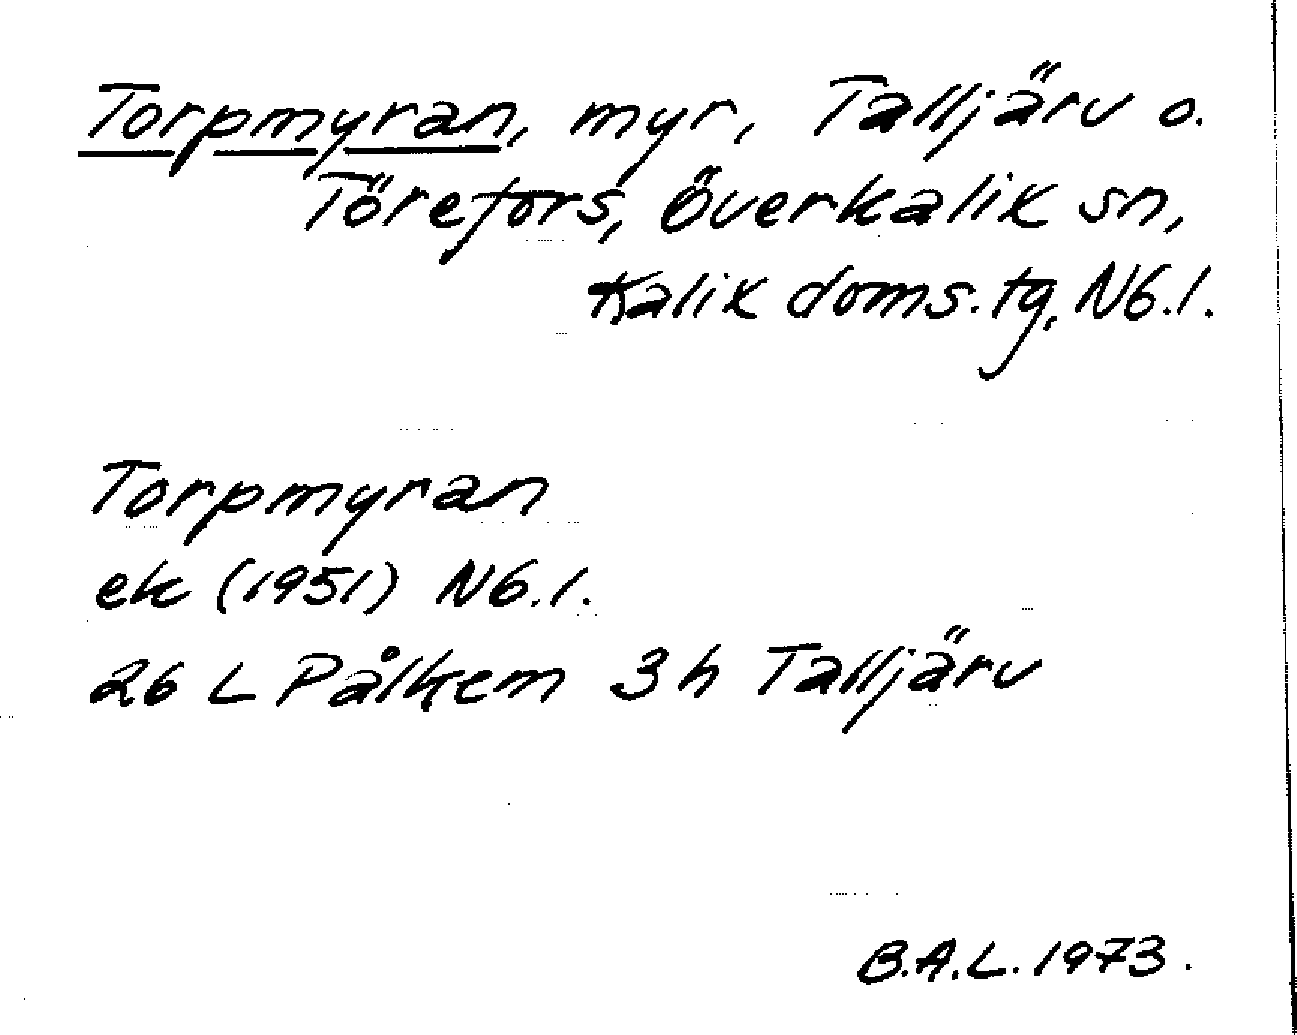 Torpmyran, myr, Talljärv o.
Törefors, överkalix sn,
Kalix doms.tg, Nb.l.
Torpmyran
ek (1951) Nb.l.
26 L Pålkem 3 h Talljärv
B.A.L. 1973.